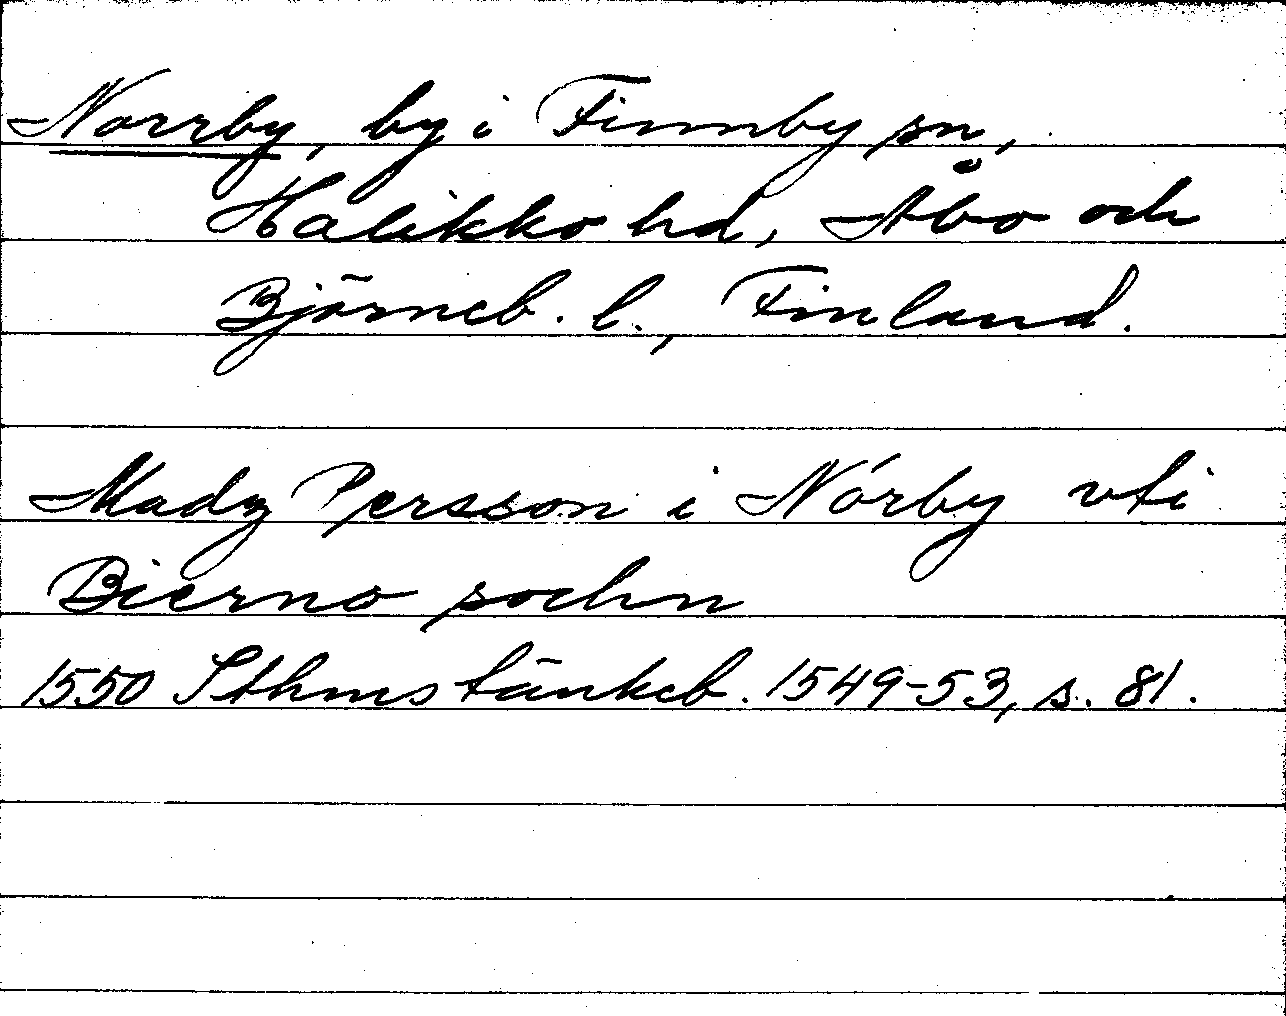 Norrby, by i Finnby sn,
Halikko hd, Åbo och
Björneb. l., Finland.
Madz Persson i Nórby vti
Bierno sochn
1550 Sthms tänkeb. 1549-53, s. 81.